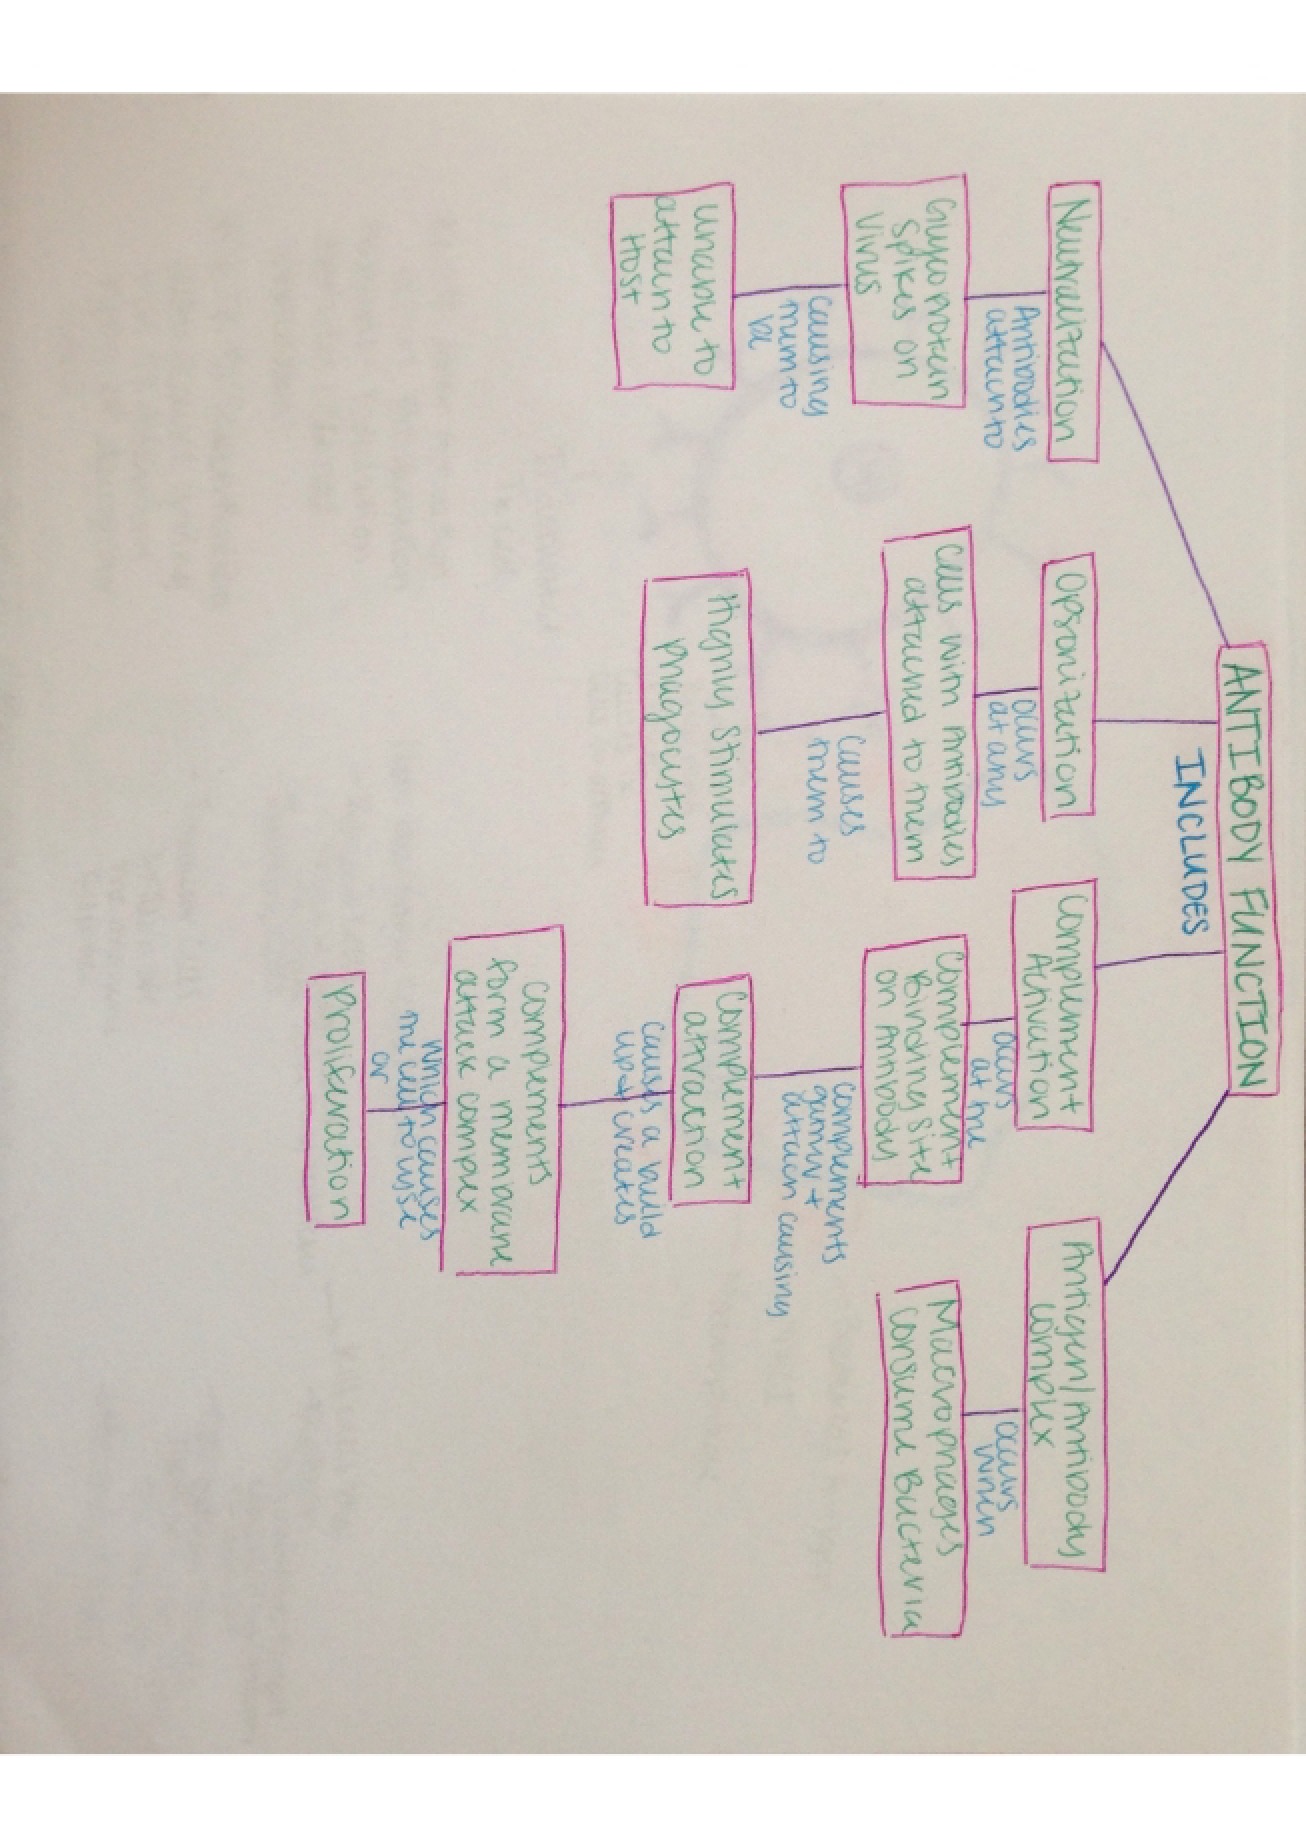 ANTIBODY FUNCTION
INCLUDES
Neutralization
Antibodies
attach to
Glycoprotein
Spikes on
Virus
causing
them to
be
unable to
attach to
Host
Opsonization
occurs
at any
cells with Antibodies
attached to them
causes
them to
Highly Stimulates
Phagocytes
Complement
Activation
occurs
at the
Complement
Binding Site
on Antibody
complements
gather +
attach causing
Complement
attraction
causes a build
up + creates
complements
form a membrane
attack complex
which causes
the cell to lyse
or
Proliferation
Antigen/Antibody
complex
occurs
when
Macrophages
consume Bacteria